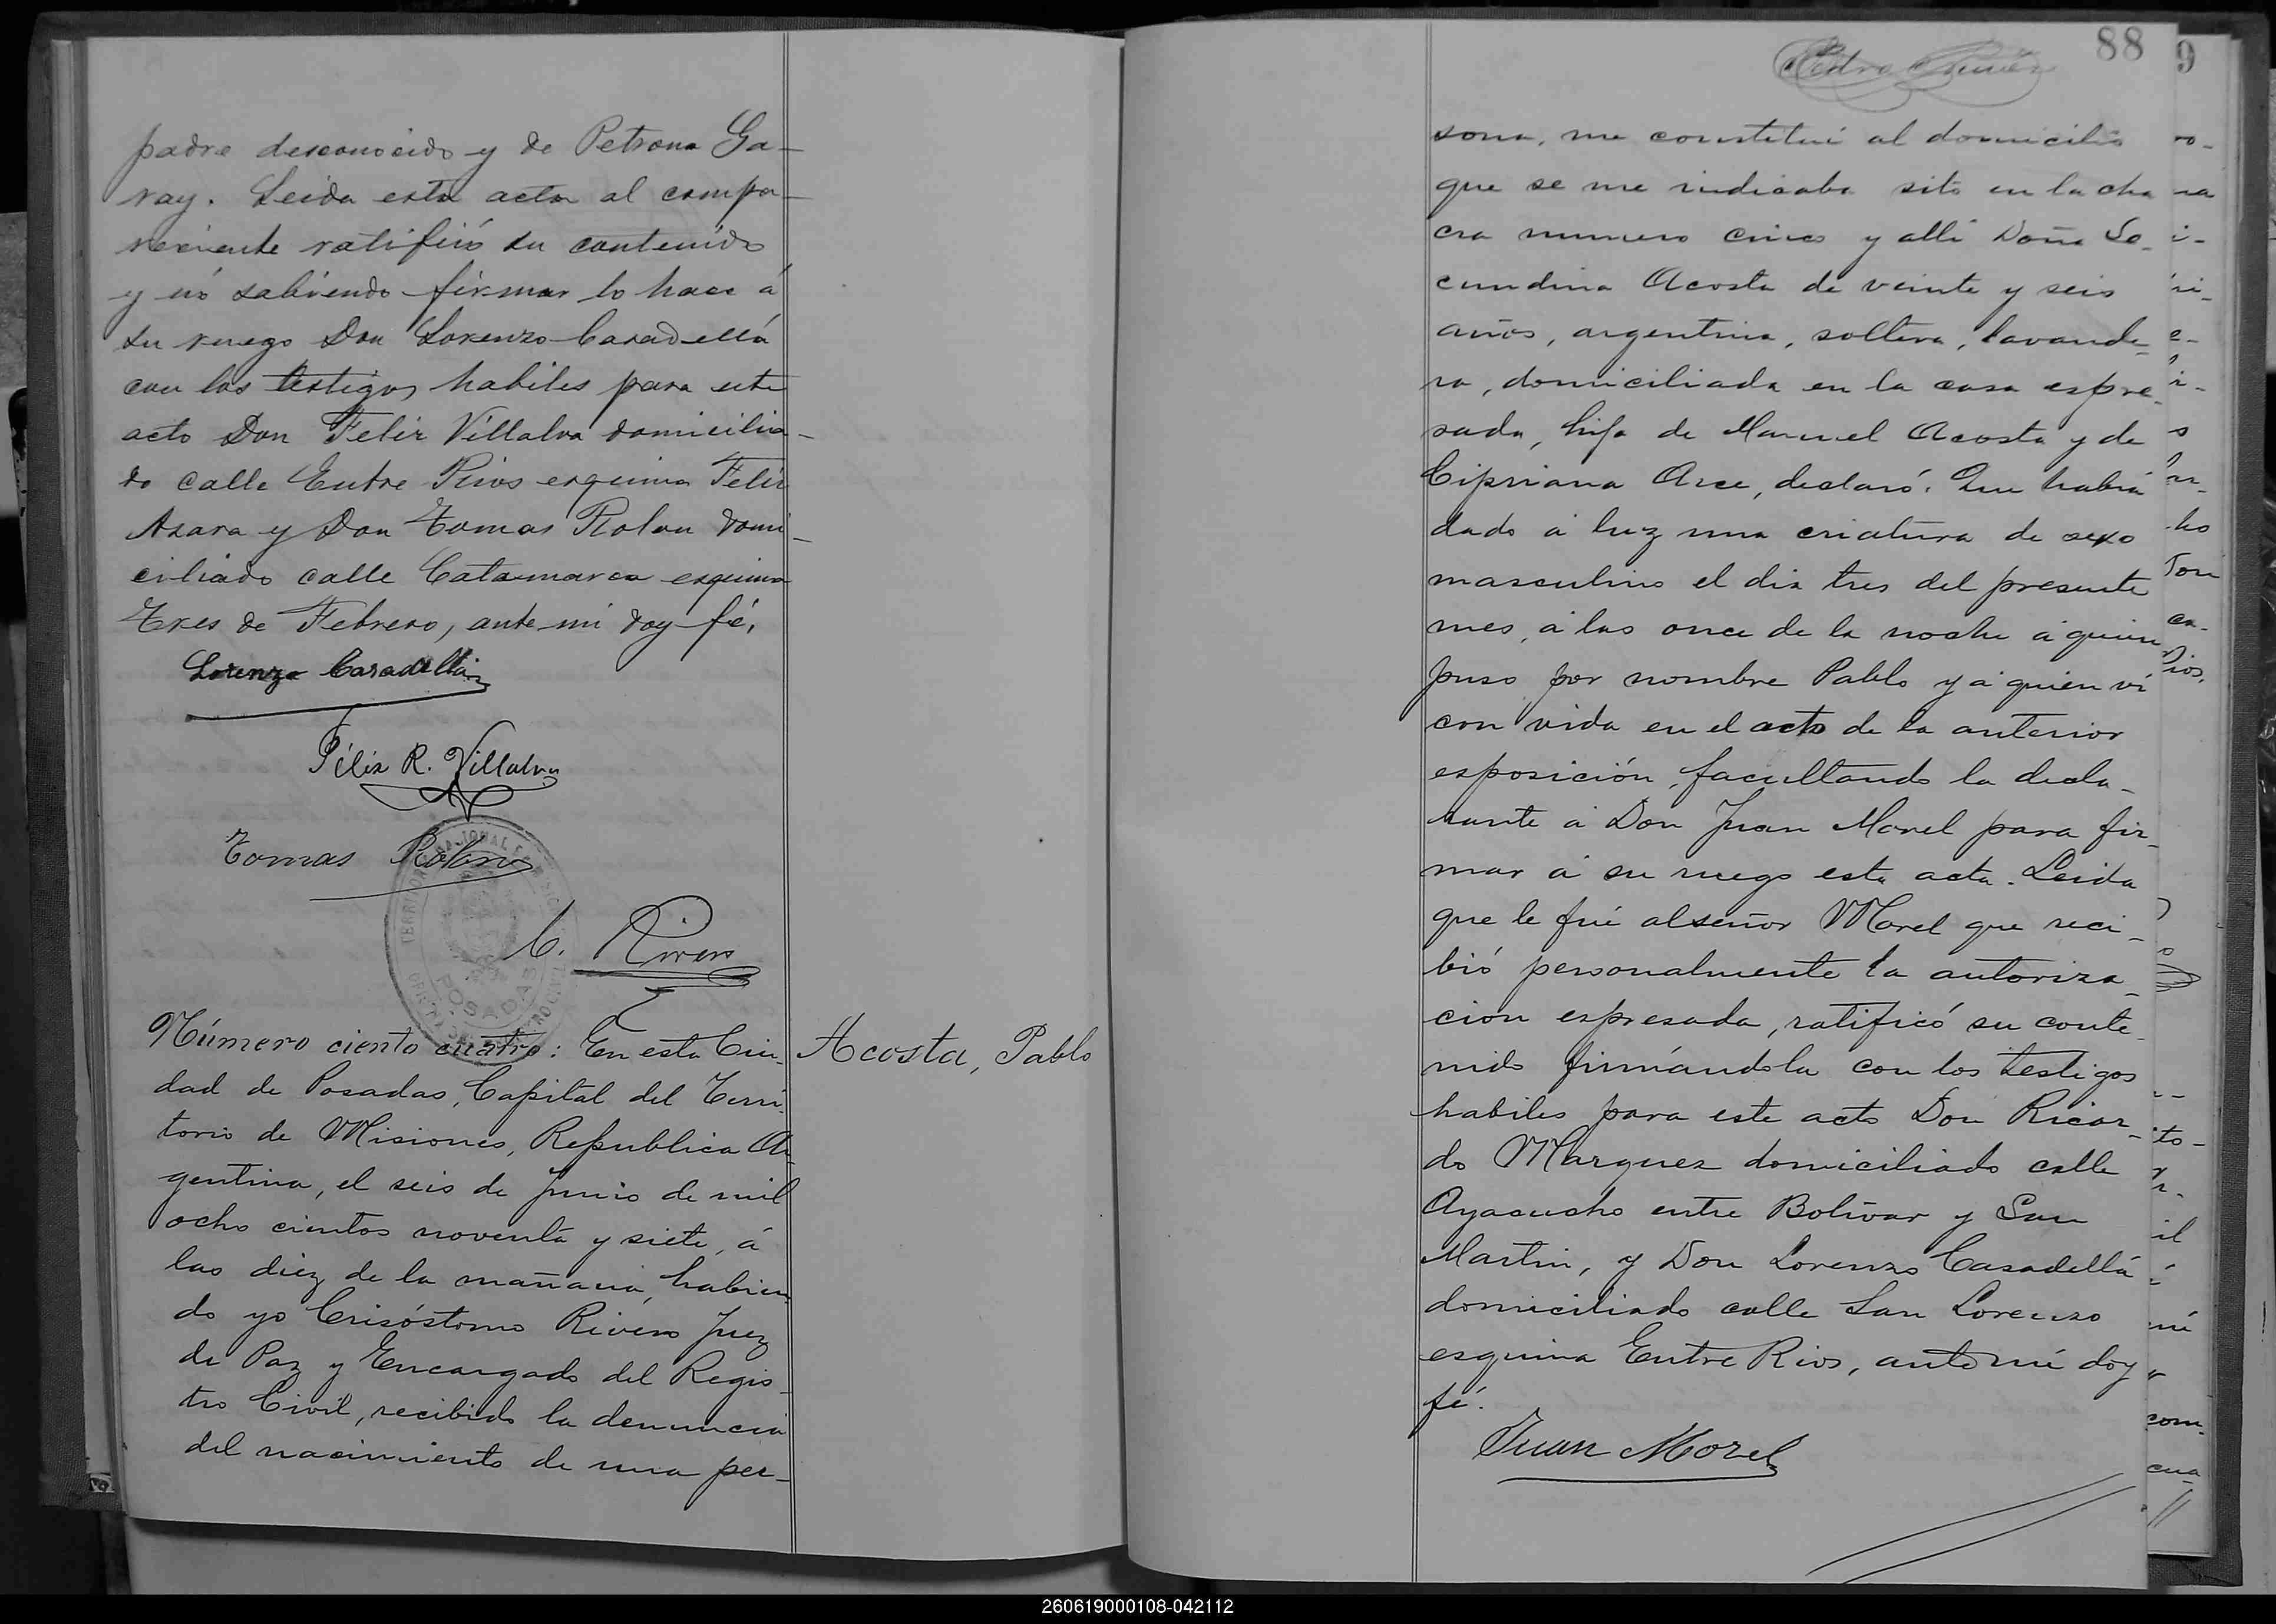 padre desconocido y de Petrona Ga-
ray. Leida esta acta al compa-
reciente ratificó su contenido
y nó sabiendo firmar lo hace á
su ruego Don Lorenzo Casadellá
con los testigos habiles para este
acto Don Felix Villalva domicilia-
do calle Entre Rios esquina Felix
Azara y Don Tomas Rolon domi-
ciliado calle Catamarca esquina
Tres de Febrero, ante mi doy fé.
Lorenzo Casadellá
Félix R. Villalva
Tomas Rolon
C. Rivero
POSADAS
Número ciento cuatro: En esta Ciu-
dad de Posadas, Capital del Terri-
torio de Misiones, Republica Ar-
gentina, el seis de Junio de mil
ocho cientos noventa y siete, á
las diez de la mañana, habien-
do yo Crisóstomo Rivero Juez
de Paz y Encargado del Regis-
tro Civil, recibido la denuncia
del nacimiento de una per-
Acosta, Pablo
88
9
sona, me constituí al domicilio
que se me indicaba sito en la cha
cra numero cinco y allí Doña Se-
cundina Acosta de veinte y seis
años, argentina, soltera, lavande-
ra, domiciliada en la casa espre-
sada, hija de Manuel Acosta y de
Cipriana Arce, declaró: Que había
dado á luz una criatura de sexo
masculino el dia tres del presente
mes, á las once de la noche á quien
puso por nombre Pablo y á quien ví
con vida en el acto de la anterior
esposición, facultando la decla-
rante á Don Juan Morel para fir-
mar á su ruego esta acta. Leida
que le fué al señor Morel que reci-
bió personalmente la autoriza-
cion espresada, ratificó su conte-
nido firmándola con los testigos
habiles para este acto Don Ricar-
do Marquez domiciliado calle
Ayacucho entre Bolívar y San
Martin, y Don Lorenzo Casadellá
domiciliado calle San Lorenzo
esquina Entre Rios, ante mí doy
fé.
Juan Morel
260619000108-042112